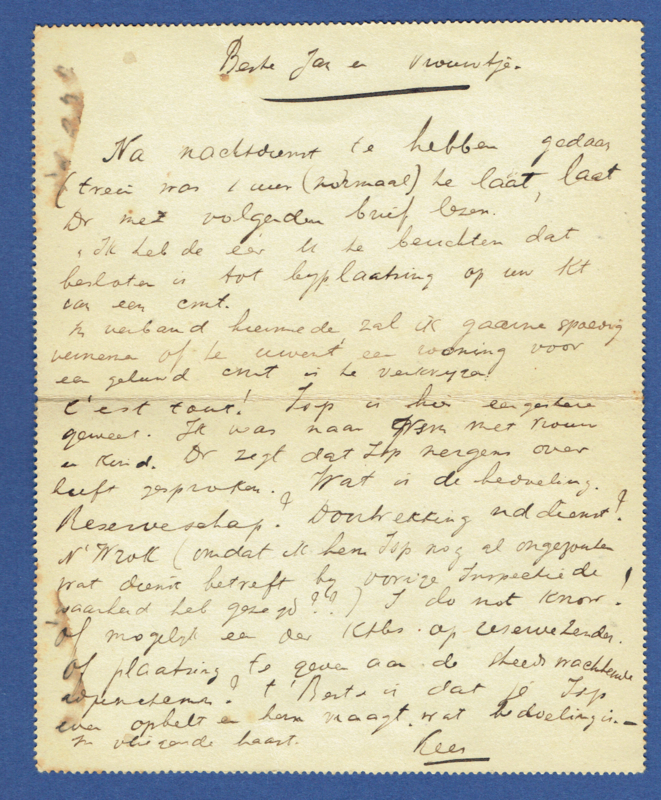 Beste Jan en Vrouwtje.
Na nachtdienst te hebben gedaan
(trein was 1 uur (normaal) te laat, laat
Dr met volgenden brief lezen.
Ik heb de eer U te berichten dat
besloten is tot byplaatsing op uw Kt
van een cmt.
In verband hiermede zal ik gaarne spoedig
vernemen of te uwent een woning voor
een gehuwd cmt is te verkrijgen
C'est tout! Isp is hier eergisteren
geweest. Ik was naar met vrouw
en Kind. Dr zegt dat Isp nergens over
heeft gesproken. Wat is de bedoeling.
Reserveschap? Douttrekking uddienst?
N' Wrok (omdat ik hem Isp nog al ongezouten
wat dienst betreft by vorige Inspectie de
waarheid heb gezegd??) I do not know!
of mogelyk een der Ktbs. op reservezenden.
of plaatsing te geven aan de steeds wachtende
? t' Beste is dat je Isp
even opbelt en hem vraagt wat bedoeling is.
In vliegende haast.
Kees